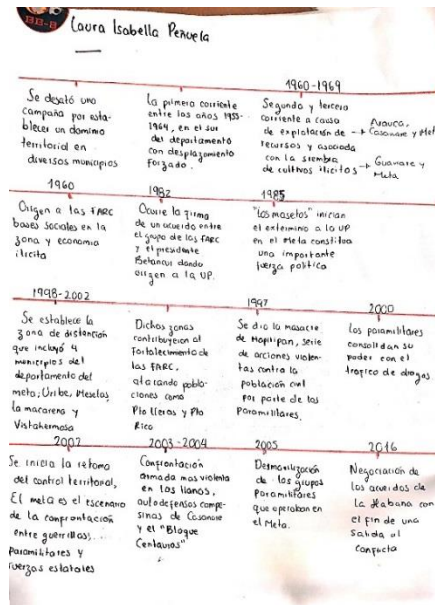 BB-B
Laura Isabella Peñuela
1960-1969
Se desató una
campaña por esta-
blecer un dominio
territorial en
diversos municipios
La primera corriente
entre los años 1953-
1964, en el sur
del departamento
con desplazamiento
forzado.
Segunda y tercera
corriente a causa
de explotación de →
recursos y asociada
con la siembra →
de cultivos ilicitos
Arauca,
Casanare y Met
Guaviare y
Meta
1960
Origen a las FARC
bases sociales en la
zona y economia
ilicita
1982
Ocurre la firma
de un acuerdo entre
el grupo de las FARC
y el presidente
Betancur dando
origen a la UP.
1985
"los masetos" inician
el exterminio a la UP
en el Meta constituia
una importante
fuerza politica
1998-2002
Se establece la
zona de distención
que incluyó 4
municipios del
departamento del
meta; Uribe, Mesetas,
la macarena y
Vistahermosa
Dichas zonas
contribuyeron al
Fortalecimiento de
las FARC,
atacando pobla-
ciones como
Pto lleras y Pto
Rico
1997
Se dio la masacre
de Mapiripan, serie
de acciones violen-
tas contra la
población civil
por parte de los
Paramilitares.
2000
Los paramilitares
consolidan su
poder con el
trafico de drogas.
2002
Se inicia la retoma
del control territorial,
El meta es el escenario
de la confrontación
entre guerrillas,
paramilitares y
fuerzas estatales
2003-2004
Confrontación
armada mas violenta
en los llanos,
autodefensas campe-
sinas de Casanare
y el "Bloque
Centauros"
2005
Desmovilización
de los grupos
Paramilitares
que operaban en
el Meta.
2016
Negociación de
los acuerdos de
La Habana con
el fin de una
Salida al
conflicto